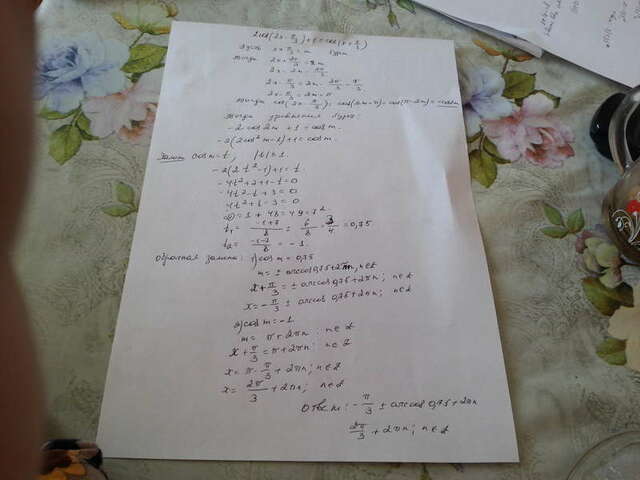 2cos(2x-π/3)+1=cos(x+π/3)
Пусть x+π/3=m
Тогда 2x+2π/3=2m
2x=2m-2π/3
2x-π/3=2m-2π/3-π/3
2x-π/3=2m-π
Тогда cos(2x-π/3)=cos(2m-π)=cos(π-2m)=-cos2m
Тогда уравнение буде
-2cos2m+1=cosm.
-2(2cos²m-1)+1=cosm.
Замен cosm=t, |t|≤1
-2(2t²-1)+1=t
-4t²+2+1-t=0
-4t²-t+3=0
4t²+t-3=0
D=1+48=49=7²
t₁=-1+7/8=6/8=3/4=0,75
t₂=-1-7/8=-1.
Обратная замена: 1)cosm=0,75
m=±arccos0,75+2πn, n∈Z
x+π/3=±arccos0,75+2πn; n∈Z
x=-π/3±arccos0,75+2πn; n∈Z
2)cosm=-1
m=π+2πn; n∈Z
x+π/3=π+2πn; n∈Z
x=π-π/3+2πn; n∈Z
x=2π/3+2πn; n∈Z
Ответ: -π/3±arccos0,75+2πn
2π/3+2πn; n∈Z